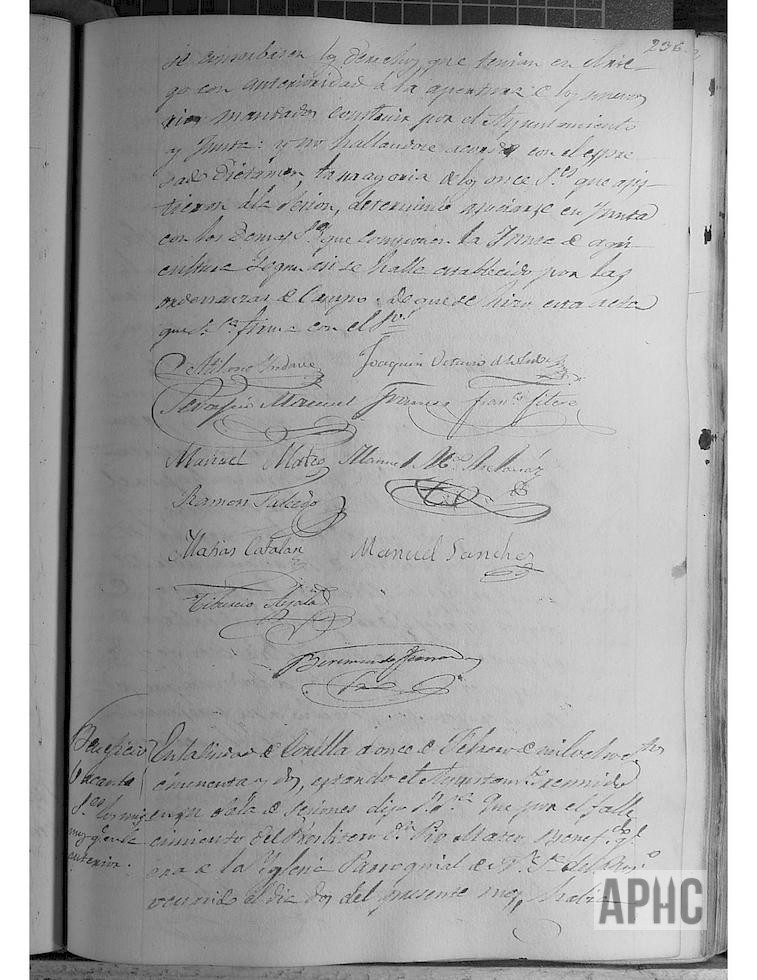 236
se concebieren los derechos que tenian en el rie-
go con anterioridad á la apertura de los nuevos
rios mandados construir por el Ayuntamiento
y Junta: y no hallandose acordes con el espre-
sado Dictamen, la mayoria de los once S.res que asis-
tieron á la Sesion, determinó asociarse en Junta
con los demas S.res que componen la Junta de agri-
cultura segun asi se halla establecido por las
ordenanzas de Campo. De que se hizo esta acta
que S. S.a firma con el S.
Joaquin Octavio de
Manuel Frances Fran.co Litere
Manuel Mateo Manuel M.a
Ramon Salcedo
Matias Catalan Manuel Sanchez
Tiburcio Ayala
Beneficio
Vacante
S.res los mis
mos q.e en la
anterior.
En la Ciudad de Corella á once de Febrero de mil ochocientos
cincuenta y dos, estando el Ayuntam.to reunido
en su sala de Sesiones dijo S. S.a Que por el falle
cimiento del Presbitero D.n Pio Mateo Benef.do q.e
era de la Yglesia Parroquial de
ocurrido el dia dos del presente mes, habia
APHC